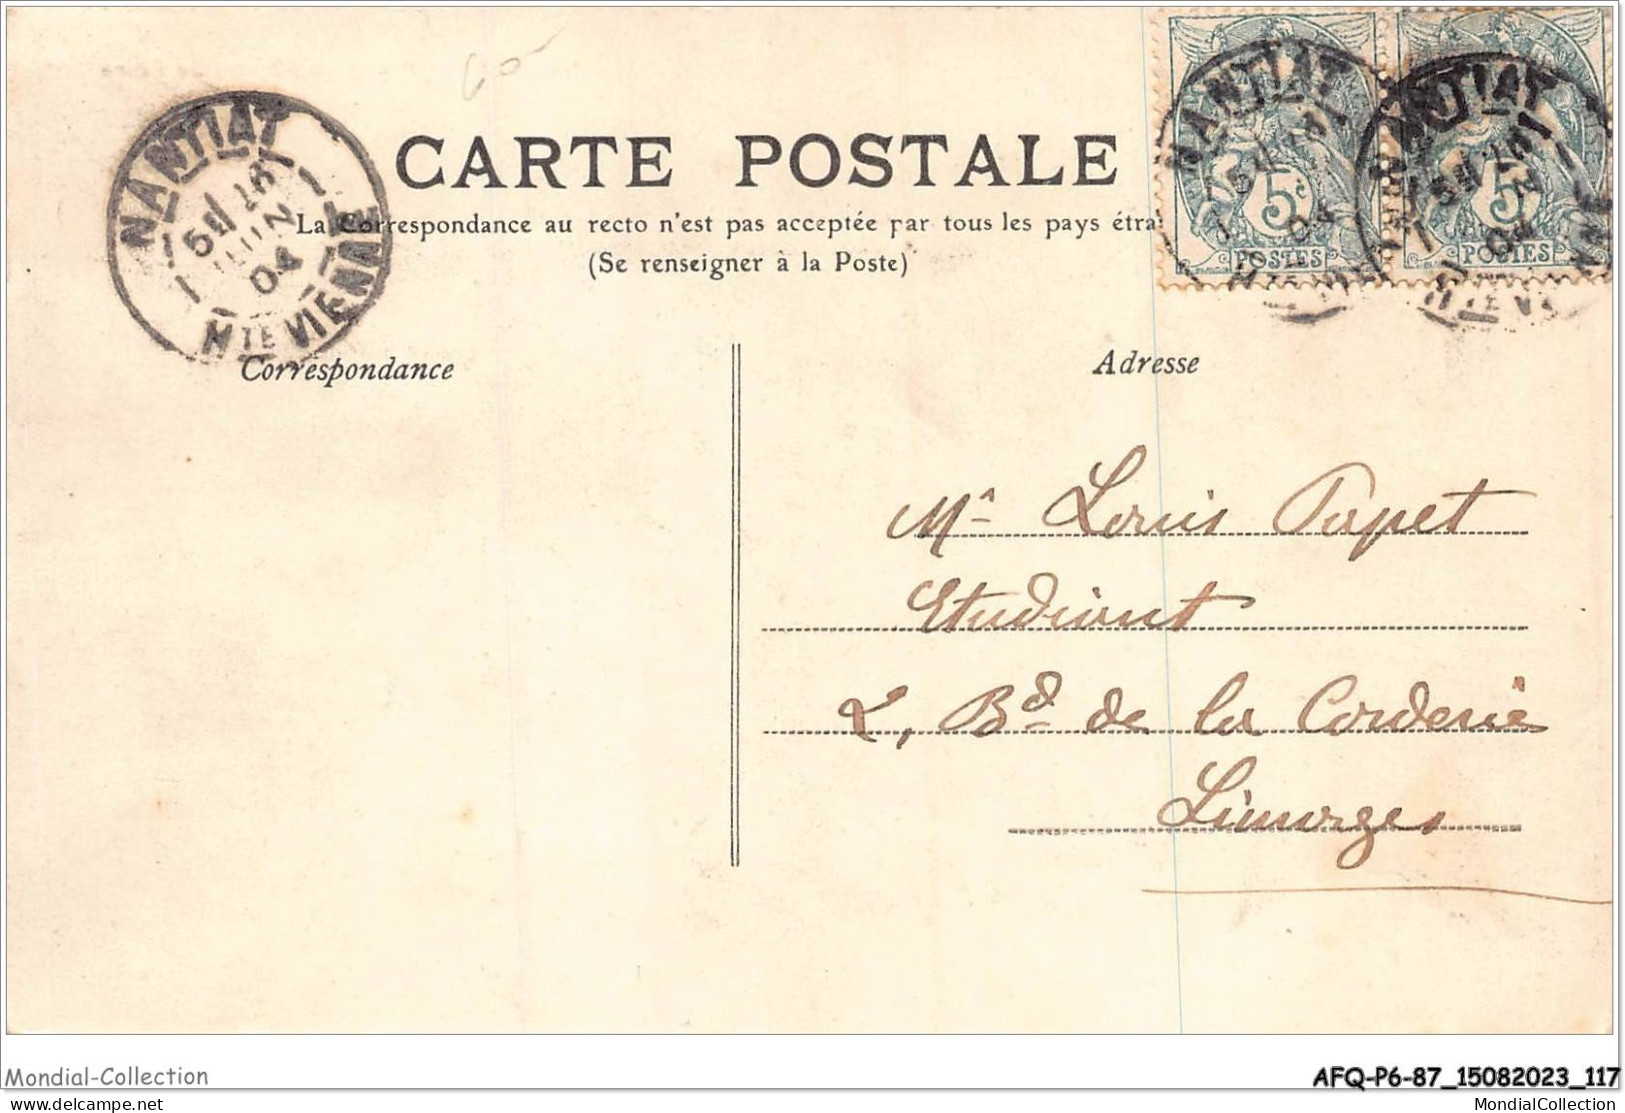 CARTE POSTALE
La Correspondance au recto n'est pas acceptée par tous les pays étra
(Se renseigner à la Poste)
NANTIAT
JUIN
04
HTE VIENNE
NANTIAT
5c
POSTES
NANTIAT
5c
POSTES
HTE VI
Correspondance
Adresse
Mr Louis Papet
Etudiant
2, Bd de la Corderie
Limoges
Mondial-Collection
AFQ-P6-87_15082023_117
delcampe.net
MondialCollection